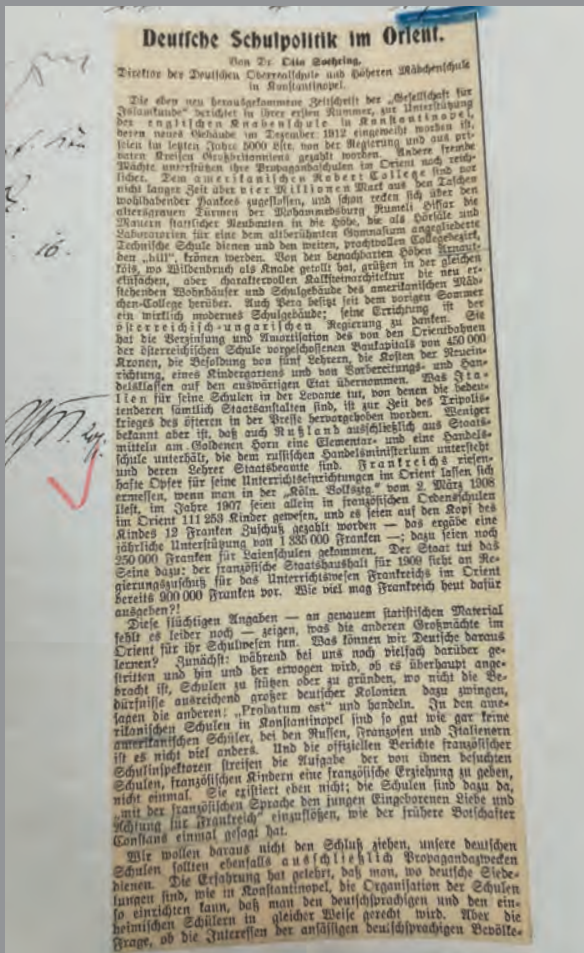 Deutsche Schulpolitik im Orient.
Von Dr. Otto Soehring,
Direktor der Deutschen Oberrealschule und Höheren Mädchenschule
in Konstantinopel.
Die eben neu herausgekommene Zeitschrift der „Gesellschaft für
Islamkunde“ berichtet in ihrer ersten Nummer, zur Unterstützung
der englischen Knabenschule in Konstantinopel,
deren neues Gebäude im Dezember 1912 eingeweiht worden ist,
seien im letzten Jahre 5000 Lstr. von der Regierung und aus pri-
vaten Kreisen Großbritanniens gezahlt worden. Andere fremde
Mächte unterstützen ihre Propagandaschulen im Orient noch reich-
licher. Dem amerikanischen Robert College sind vor
nicht langer Zeit über vier Millionen Mark aus den Taschen
wohlhabender Yankees zugeflossen, und schon recken sich über den
altersgrauen Türmen der Mohammedsburg Rumeli Hissar die
Mauern stattlicher Neubauten in die Höhe, die als Hörsäle und
Laboratorien für eine dem altberühmten Gymnasium angegliederte
Technische Schule dienen und den weiten, prachtvollen Collegebezirk,
den „hill“, krönen werden. Von den benachbarten Höhen Arnaut-
köis, wo Wildenbruch als Knabe getollt hat, grüßen in der gleichen
einfachen, aber charaktervollen Kalksteinarchitektur die neu er-
stehenden Wohnhäuser und Schulgebäude des amerikanischen Mäd-
chen-College herüber. Auch Pera besitzt seit dem vorigen Sommer
ein wirklich modernes Schulgebäude; seine Errichtung ist der
österreichisch-ungarischen Regierung zu danken. Sie
hat die Verzinsung und Amortisation des von den Orientbahnen
der österreichischen Schule vorgeschossenen Baukapitals von 450 000
Kronen, die Besoldung von fünf Lehrern, die Kosten der Neuein-
richtung, eines Kindergartens und von Vorbereitungs- und Han-
delsklassen auf den auswärtigen Etat übernommen. Was Ita-
lien für seine Schulen in der Levante tut, von denen die bedeu-
tenderen sämtlich Staatsanstalten sind, ist zur Zeit des Tripolis-
krieges des öfteren in der Presse hervorgehoben worden. Weniger
bekannt aber ist, daß auch Rußland ausschließlich aus Staats-
mitteln am Goldenen Horn eine Elementar- und eine Handels-
schule unterhält, die dem russischen Handelsministerium untersteht
und deren Lehrer Staatsbeamte sind. Frankreichs riesen-
hafte Opfer für seine Unterrichtseinrichtungen im Orient lassen sich
ermessen, wenn man in der „Köln. Volksztg.“ vom 2. März 1908
liest, im Jahre 1907 seien allein in französischen Ordensschulen
im Orient 111 253 Kinder gewesen, und es seien auf den Kopf des
Kindes 12 Franken Zuschuß gezahlt worden — das ergäbe eine
jährliche Unterstützung von 1 335 000 Franken —; dazu seien noch
250 000 Franken für Laienschulen gekommen. Der Staat tut das
Seine dazu: der französische Staatshaushalt für 1909 sieht an Re-
gierungszuschuß für das Unterrichtswesen Frankreichs im Orient
bereits 900 000 Franken vor. Wie viel mag Frankreich heut dafür
ausgeben?!
Diese flüchtigen Angaben — an genauem statistischen Material
fehlt es leider noch — zeigen, was die anderen Großmächte im
Orient für ihr Schulwesen tun. Was können wir Deutsche daraus
lernen? Zunächst: während bei uns noch vielfach darüber ge-
stritten und hin und her erwogen wird, ob es überhaupt ange-
bracht ist, Schulen zu stützen oder zu gründen, wo nicht die Be-
dürfnisse ausreichend großer deutscher Kolonien dazu zwingen,
sagen die anderen: „Probatum est“ und handeln. In den ame-
rikanischen Schulen in Konstantinopel sind so gut wie gar keine
amerikanischen Schüler, bei den Russen, Franzosen und Italienern
ist es nicht viel anders. Und die offiziellen Berichte französischer
Schulinspektoren streifen die Aufgabe der von ihnen besuchten
Schulen, französischen Kindern eine französische Erziehung zu geben,
nicht einmal. Sie existiert eben nicht; die Schulen sind dazu da,
„mit der französischen Sprache den jungen Eingeborenen Liebe und
Achtung für Frankreich“ einzuflößen, wie der frühere Botschafter
Constans einmal gesagt hat.
Wir wollen daraus nicht den Schluß ziehen, unsere deutschen
Schulen sollten ebenfalls ausschließlich Propagandazwecken
dienen. Die Erfahrung hat gelehrt, daß man, wo deutsche Siede-
lungen sind, wie in Konstantinopel, die Organisation der Schulen
so einrichten kann, daß man den deutschsprachigen und den ein-
heimischen Schülern in gleicher Weise gerecht wird. Aber die
Frage, ob die Interessen der ansässigen deutschsprachigen Bevölke-
16.